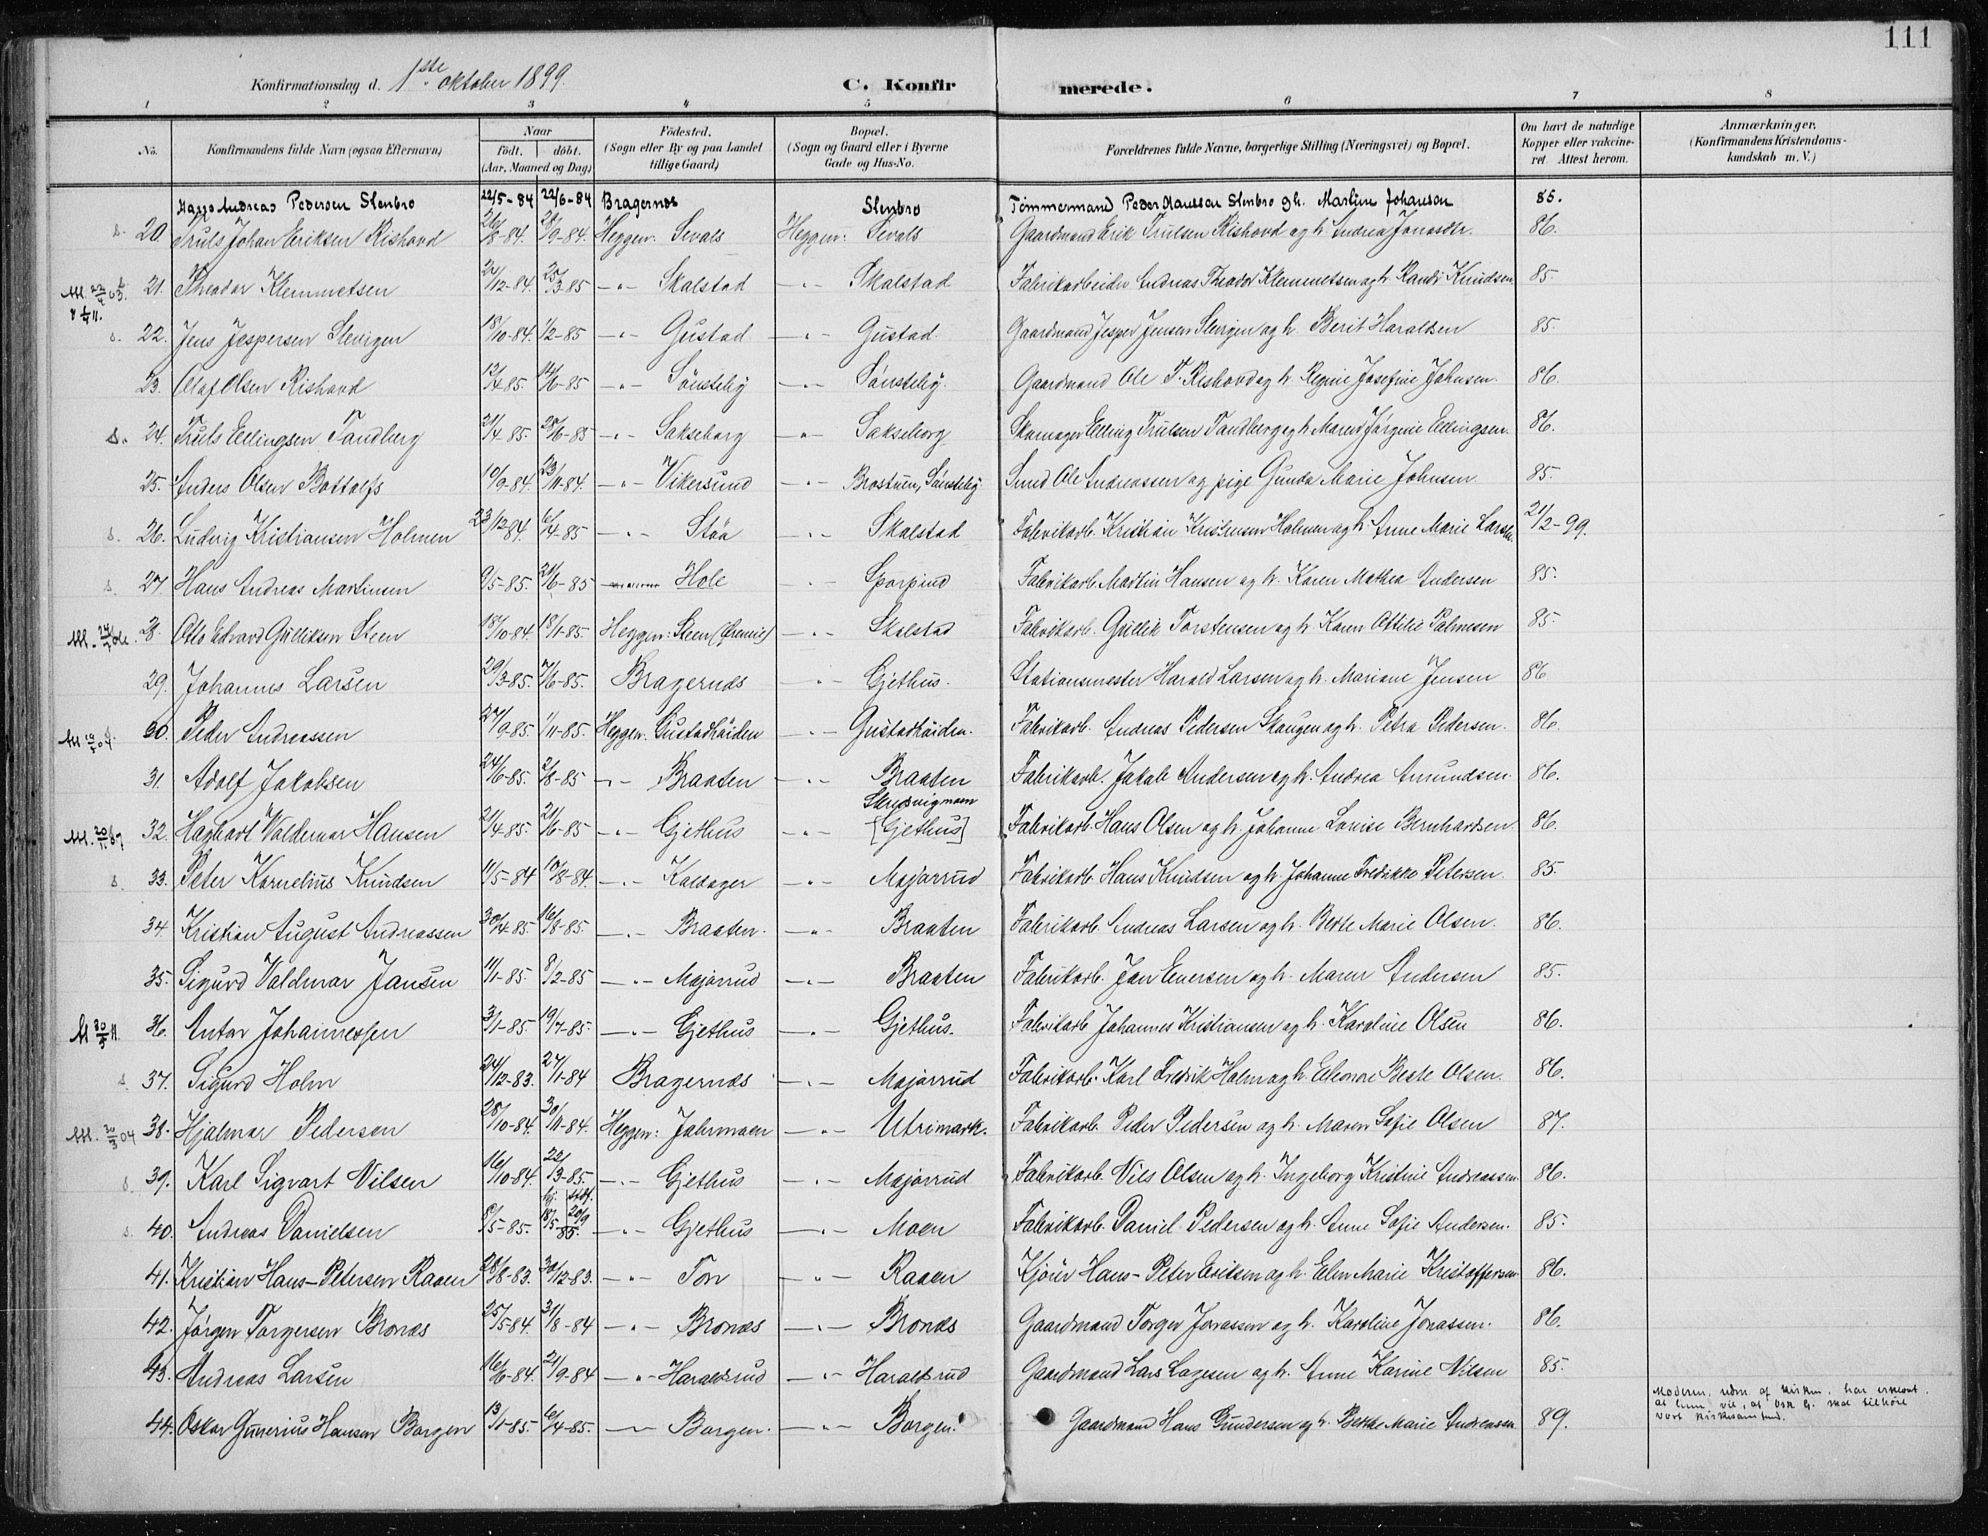 111
Konfirmationsdag d. 1ste oktober 1899. C. Konfirmerede.
1 2 3 4 5 6 7 8
No. Konfirmandens fulde Navn (ogsaa Efternavn) Naar født. døbt. (Aar, Maaned og Dag) Fødested. (Sogn eller By og paa Landet tillige Gaard) Bopæl. (Sogn og Gaard eller i Byerne Gade og Hus-No. Forældrenes fulde Navne, borgerlige Stilling (Næringsvei) og Bopæl. Om havt de naturlige Kopper eller vakcineret. Attest herom. Anmærkninger. (Konfirmandens Kristendomskundskab m. V.)
Hans Andreas Pedersen Stenbro 22/5-84 22/6-84 Bragernes Stenbro Tømmermand Peder Hanssen Stenbro og h. Martine Johansen 85.
s. 20. Truls Johan Eriksen Rishovd 26/8-84. 28/9-84. Heggen: Sevals Heggen: Sevals Gaardmand Erik Trulsen Rishovd og h. Andrea Jonasdtr. 86.
21. Theodor Klemmetsen /12-84 25/3-85 -"- Skalstad -"- Skalstad Fabrikarbeider Andreas Theodor Klemmetsen og h. Randi Knudsen 85.
s. 22. Jens Jespersen Slevigen 18/10-84. 1/2-85 -"- Gustad -"- Gustad Gaardmand Jesper Jensen Slevigen og h. Berit Haraldsen 85.
23. Olaf Olsen Rishovd 12/4-85. 14/6-85 -"- Sønsteby -"- Sønsteby. Gaardmand Ole T. Rishovd og h. Regine Josefine Johnsen. 86.
s. 24. Truls Ellingsen Tandberg 21/4-85. 28/6-85 -"- Sakseborg -"- Sakseborg Skomager Elling Trulsen Tandberg og h. Maren Jørgine Ellingsen. 86.
25. Anders Olsen Bottolfs 10/9-84. 23/11-84. -"- Vikersund -"- Brostuen, Sønsteby Smed Ole Andreassen og pige Gunda Marie Johnsen. 85.
s. 26. Ludvig Kristiansen Holmen 23/12-84. 6/4-85 -"- Støa -"- Skalstad Fabrikarb. Kristian Kristensen Holmen og h. Anne Marie Larsen. 21/2-99.
s. 27. Hans Andreas Martinsen 9/5-85. 21/6-85 Hole -"- Sporpind Fabrikarb. Martin Hansen og h. Karen Mathea Andersen 85.
28. Otto Edvard Gulliksen Steen 18/10-84 18/1-85. Heggen: Steen -"- Skalstad Fabrikarb. Gullik Torstensen og h. Karen Ottilie Palmesen 85.
29. Johannes Larsen 29/3-85. 7/6-85. Bragernes -"- Gjethus. Stationsmester Harald Larsen og h. Mariane Jensen 86
30. Peder Andreassen 27/9-85. 1/11-85. Heggen: Gustadhøiden -"- Gustadhøiden. Fabrikarb. Andreas Pedersen Skaugen og h. Petra Pedersen. 86.
31. Adolf Jakobsen 24/6-85. 2/8-85 -"- Braaten -"- Braaten Fabrikarb. Jakob Andersen og h. Andrea Amundsen. 86.
32. Hagbart Valdemar Hansen 21/4-85. 21/6-85 -"- Gjethus -"- Skredsvigmoen [Gjethus] Fabrikarb. Hans Olsen og h. Johanne Lovise Bernhardsen 86.
s. 33. Peter Kornelius Knudsen 11/5-84 10/8-84. -"- Kaldager -"- Majorrud Fabrikarb. Hans Knudsen og h. Johanne Fredrikke Petersen. 85.
34. Kristian August Andreassen 30/4-85. 16/8-85. -"- Braaten. -"- Braaten Fabrikarb. Andreas Larsen og h. Berte Marie Olsen. 86.
35. Sigurd Valdemar Jansen 11/1-85. 8/2-85 -"- Majorrud -"- Braaten Fabrikarb. Jan Evensen og h. Maren Andersen 85.
36. Anton Johannessen 3/1-85. 19/7-85. -"- Gjethus -"- Gjethus. Fabrikarb Johannes Kristiansen og h. Karoline Olsen 86.
s. 37. Sigurd Holm 24/12-83. 27/1-84 Bragernes -"- Majorrud Fabrikarb. Karl Fredrik Holm og h. Eleonore Berte Olsen. 86.
38. Hjalmar Pedersen 28/10-84. 30/11-84. Heggen: Jahrmoen -"- Utrimark. Fabrikarb. Peder Pedersen og h. Maren Sofie Olsen 87.
s. 39. Karl Sigvart Nilsen 16/10-84. 22/3-85. -"- Gjethus -"- Majorrud Fabrikarb Nils Olsen og h. Ingeborg Kristine Andreassen 86.
s. 40. Andreas Danielsen 8/5-85. hj. 18/5 20/9 85. -"- Gjethus -"- Moen Fabrikarb. Daniel Pedersen og h. Anne Sofie Andersen. 85.
41. Kristian Hans-Petersen Raaen 28/8-83. 30/12-83. -"- Ton -"- Raaen Kjører Hans-Peter Eriksen og h. Elen Marie Kristoffersen 86.
42. Jørgen Torgersen Brones 25/5-84. 31/8-84 -"- Brones -"- Brones Gaardmand Torger Jonassen og h. Karoline Jonassen. 86.
43. Andreas Larsen 16/6-84. 21/9-84 -"- Haraldsrud -"- Haraldsrud Gaardmand Lars Lagesen og h. Anne Karine Nilsen 85.
44. Oskar Gunerius Hansen Borgen 13/1-85. 6/4-85. -"- Borgen. -"- Borgen. Gaardmand Hans Gundersen og h. Berthe Marie Andreasen 89.
Moderen, udm. af kirken, har erklæret
at hun vil, at Osk. G. skal tilhøre
vort kirkesamfund.